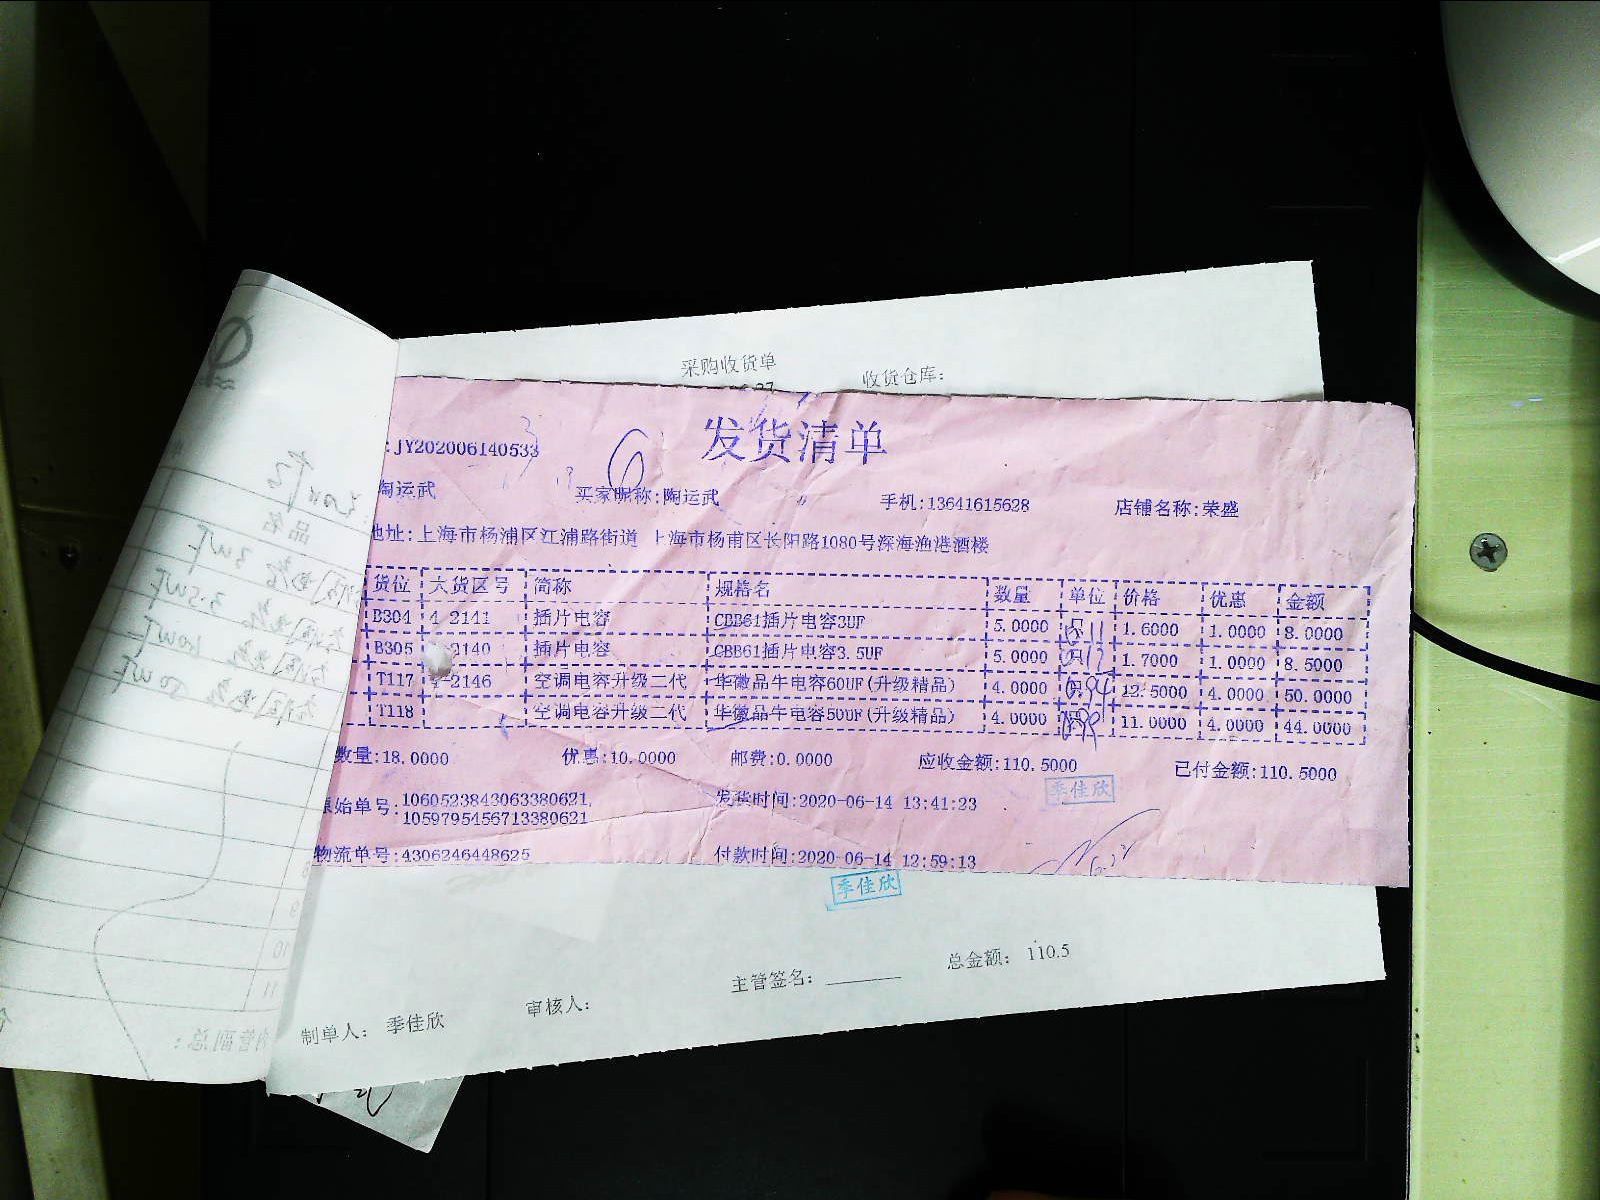 采购收货单 收货仓库:
发货清单
:JY202006140533
陶运武 买家昵称:陶运武 手机:13641615628 店铺名称:荣盛
地址:上海市杨浦区江浦路街道 上海市杨甫区长阳路1080号深海渔港酒楼
货位 大货区号 简称 规格名 数量 单位 价格 优惠 金额
B304 4-2141 插片电容 CBB61插片电容3UF 5.0000 1.6000 1.0000 8.0000
B305 2140 插片电容 CBB61插片电容3.5UF 5.0000 1.7000 1.0000 8.5000
T117 4-2146 空调电容升级二代 华徽品牛电容60UF(升级精品) 4.0000 12.5000 4.0000 50.0000
T118 空调电容升级二代 华徽品牛电容50UF(升级精品) 4.0000 11.0000 4.0000 44.0000
数量:18.0000 优惠:10.0000 邮费:0.0000 应收金额:110.5000 已付金额:110.5000
季佳欣
原始单号:1060523843063380621,
1059795456713380621
发货时间:2020-06-14 13:41:23
物流单号:4306246448625 付款时间:2020-06-14 12:59:13
季佳欣
制单人: 季佳欣 审核人: 主管签名: 总金额: 110.5